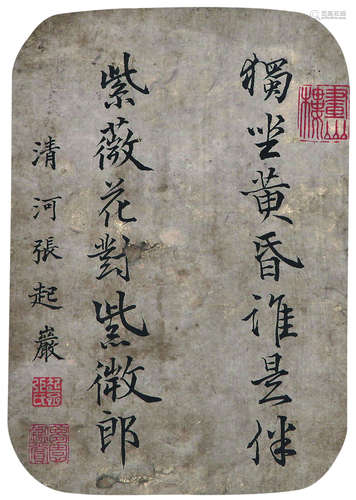 獨坐黄昏誰是伴
紫薇花對紫微郎
清河張起巖